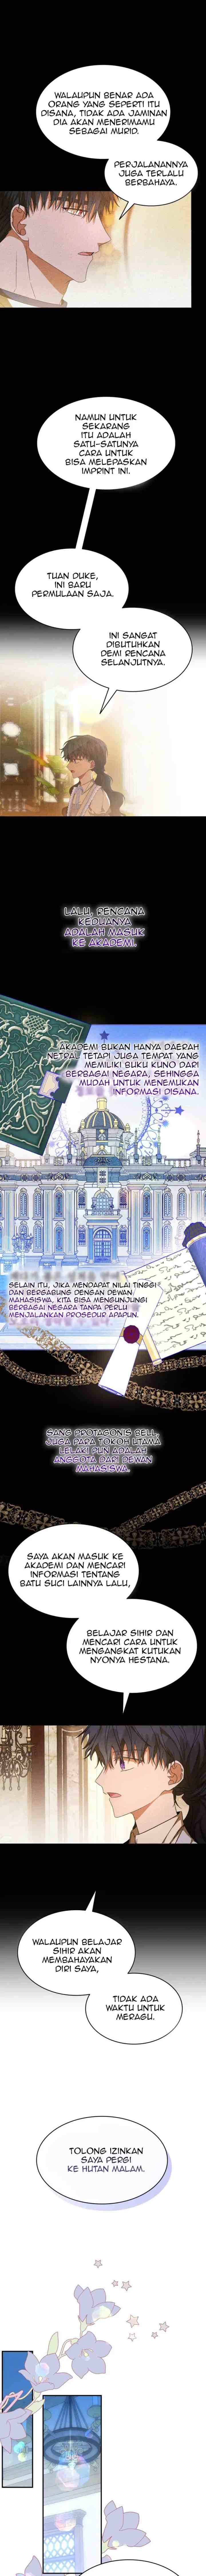 WALAUPUN BENAR ADA
ORANG YANG SEPERTI ITU
DISANA, TIDAK ADA JAMINAN
DIA AKAN MENERIMAMU
SEBAGAI MURID.
PERJALANANNYA
JUGA TERLALU
BERBAHAYA.
NAMUN UNTUK
SEKARANG
ITU ADALAH
SATU-SATUNYA
CARA UNTUK
BISA MELEPASKAN
IMPRINT INI.
TUAN DUKE,
INI BARU
PERMULAAN SAJA.
INI SANGAT
DIBUTUHKAN
DEMI RENCANA
SELANJUTNYA.
LALU, RENCANA
KEDUANYA
ADALAH MASUK
KE AKADEMI.
AKADEMI BUKAN HANYA DAERAH
NETRAL TETAPI JUGA TEMPAT YANG
MEMILIKI BUKU KUNO DARI
BERBAGAI NEGARA, SEHINGGA
MUDAH UNTUK MENEMUKAN
INFORMASI DISANA.
SELAIN ITU, JIKA MENDAPAT NILAI TINGGI
DAN BERGABUNG DENGAN DEWAN
MAHASISWA, KITA BISA MENGUNJUNGI
BERBAGAI NEGARA TANPA PERLU
MENJALANKAN PROSEDUR APAPUN.
SANG PROTAGONIS BELL,
JUGA PARA TOKOH UTAMA
LELAKI PUN ADALAH
ANGGOTA DARI DEWAN
MAHASISWA.
SAYA AKAN MASUK KE
AKADEMI DAN MENCARI
INFORMASI TENTANG
BATU SUCI LAINNYA LALU,
BELAJAR SIHIR DAN
MENCARI CARA UNTUK
MENGANGKAT KUTUKAN
NYONYA HESTANA.
WALAUPUN BELAJAR
SIHIR AKAN
MEMBAHAYAKAN
DIRI SAYA,
TIDAK ADA
WAKTU UNTUK
MERAGU.
TOLONG IZINKAN
SAYA PERGI
KE HUTAN MALAM.